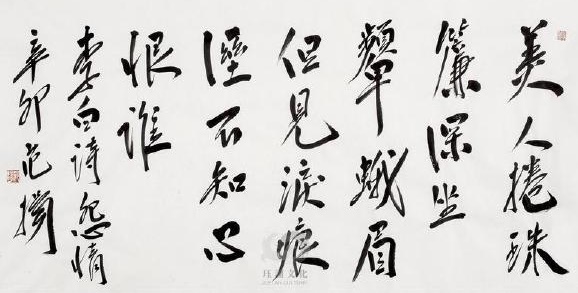 美人捲珠
簾深坐
顰蛾眉
但見淚痕
溼不知心
恨誰
李白詩怨情
辛卯范
文化